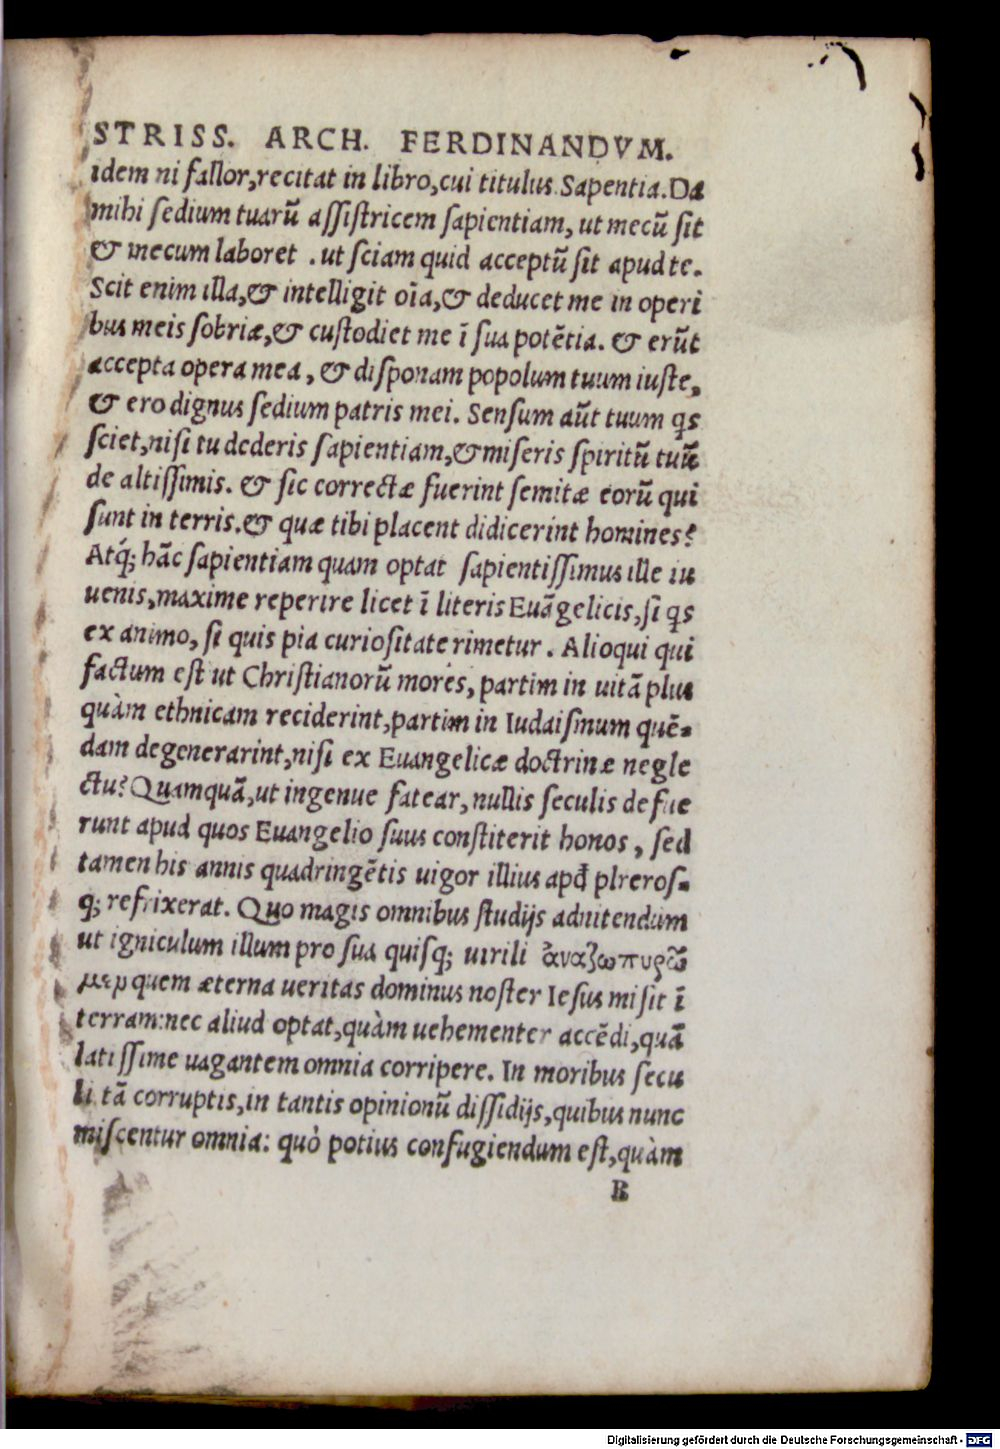 STRISS. ARCH. FERDINANDVM.
idem ni fallor, recitat in libro, cui titulus Sapentia. Da
mihi ſedium tuarū aſſiſtricem ſapientiam, ut mecū ſit
& mecum laboret . ut ſciam quid acceptū ſit apud te.
Scit enim illa, & intelligit oīa, & deducet me in operi
bus meis ſobriæ, & cuſtodiet me ī ſua potētia. & erūt
accepta opera mea , & diſponam popolum tuum iuſte,
& ero dignus ſedium patris mei. Senſum aūt tuum qs
ſciet, niſi tu dederis ſapientiam, & miſeris ſpiritū tuū
de altiſſimis. & ſic correctæ fuerint ſemitæ eorū qui
ſunt in terris. & quæ tibi placent didicerint homines?
Atq́; hāc ſapientiam quam optat ſapientiſſimus ille iu
uenis, maxime reperire licet ī literis Euāgelicis, ſi qs
ex animo, ſi quis pia curioſitate rimetur . Alioqui qui
factum eſt ut Chriſtianorū mores, partim in uitā plus
quàm ethnicam reciderint, partim in Iudaiſmum quē-
dam degenerarint, niſi ex Euangelicæ doctrinæ negle
ctu? Quamquā, ut ingenue fatear, nullis ſeculis defue
runt apud quos Euangelio ſuus conſtiterit honos , ſed
tamen his annis quadringētis uigor illius apđ plreroſ-
q; refrixerat. Quo magis omnibus ſtudijs adnitendum
ut igniculum illum pro ſua quiſq; uirili ἀναζωπυρῶ
μεν quem æterna ueritas dominus noſter Ieſus miſit ī
terram: nec aliud optat, quàm uehementer accēdi, quā
latiſſime uagantem omnia corripere. In moribus ſecu
li tā corruptis, in tantis opinionū diſſidijs, quibus nunc
miſcentur omnia: quò potius confugiendum eſt, quàm
B
Digitalisierung gefördert durch die Deutsche Forschungsgemeinschaft - DFG